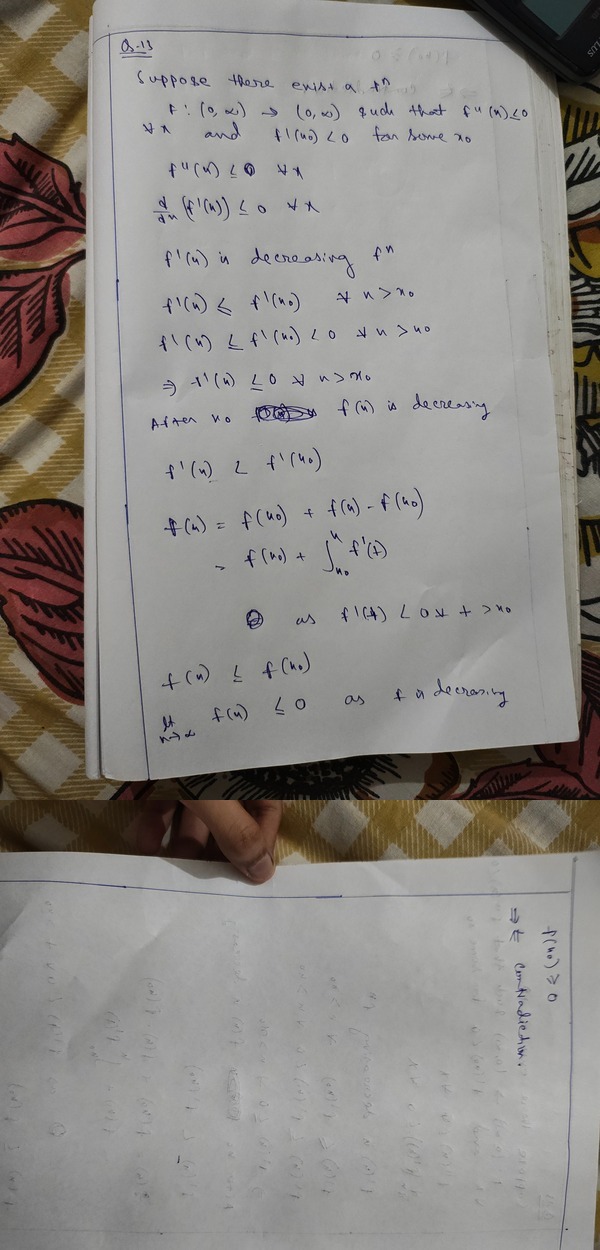 Q-13
Suppose there exist a fⁿ
f : (0, ∞) → (0, ∞) such that f''(x) ≤ 0
∀ x and f'(x₀) < 0 for some x₀
f''(x) ≤ 0 ∀ x
d/dx (f'(x)) ≤ 0 ∀ x
f'(x) is decreasing fⁿ
f'(x) ≤ f'(x₀) ∀ x > x₀
f'(x) ≤ f'(x₀) < 0 ∀ x > x₀
⇒ f'(x) ≤ 0 ∀ x > x₀
After x₀ f(x) is decreasing
f'(x) < f'(x₀)
f(x) = f(x₀) + f(x) - f(x₀)
= f(x₀) + ∫ₓ₀ˣ f'(t)
as f'(t) < 0 ∀ t > x₀
f(x) ≤ f(x₀)
lt x→∞ f(x) ≤ 0 as f is decreasing
f(x₀) ≥ 0
⇒⇐ contradiction.